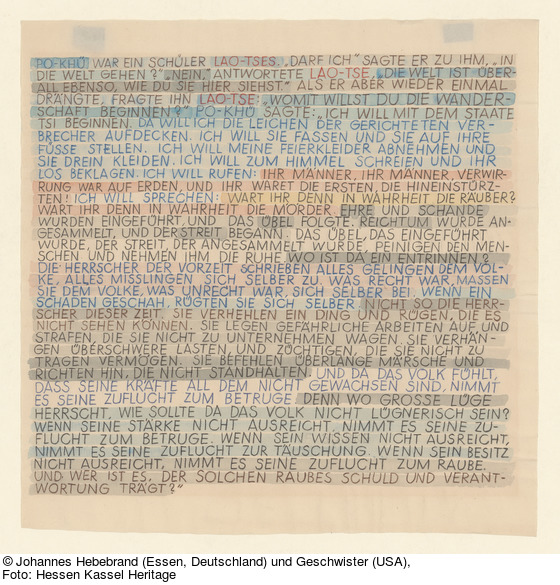 PO-KHÜ WAR EIN SCHÜLER LAO-TSES. „DARF ICH“ SAGTE ER ZU IHM, „IN
DIE WELT GEHEN?“ „NEIN,“ ANTWORTETE LAO-TSE, „DIE WELT IST ÜBER-
ALL EBENSO, WIE DU SIE HIER SIEHST.“ ALS ER ABER WIEDER EINMAL
DRÄNGTE, FRAGTE IHN LAO-TSE: „WOMIT WILLST DU DIE WANDER-
SCHAFT BEGINNEN?“ PO-KHÜ SAGTE: „ICH WILL MIT DEM STAATE
TSI BEGINNEN. DA WILL ICH DIE LEICHEN DER GERICHTETEN VER-
BRECHER AUFDECKEN. ICH WILL SIE FASSEN UND SIE AUF IHRE
FÜSSE STELLEN. ICH WILL MEINE FEIERKLEIDER ABNEHMEN UND
SIE DREIN KLEIDEN. ICH WILL ZUM HIMMEL SCHREIEN UND IHR
LOS BEKLAGEN. ICH WILL RUFEN: IHR MÄNNER, IHR MÄNNER, VERWIR-
RUNG WAR AUF ERDEN, UND IHR WARET DIE ERSTEN, DIE HINEINSTÜRZ-
TEN! ICH WILL SPRECHEN: WART IHR DENN IN WAHRHEIT DIE RÄUBER?
WART IHR DENN IN WAHRHEIT DIE MÖRDER. EHRE UND SCHANDE
WURDEN EINGEFÜHRT, UND DAS ÜBEL FOLGTE. REICHTUM WURDE AN-
GESAMMELT, UND DER STREIT BEGANN. DAS ÜBEL, DAS EINGEFÜHRT
WURDE, DER STREIT, DER ANGESAMMELT WURDE, PEINIGEN DEN MEN-
SCHEN UND NEHMEN IHM DIE RUHE. WO IST DA EIN ENTRINNEN?
DIE HERRSCHER DER VORZEIT SCHRIEBEN ALLES GELINGEN DEM VOL-
KE, ALLES MISSLINGEN SICH SELBER ZU. WAS RECHT WAR, MASSEN
SIE DEM VOLKE, WAS UNRECHT WAR, SICH SELBER BEI. WENN EIN
SCHADEN GESCHAH, RÜGTEN SIE SICH SELBER. NICHT SO DIE HERR-
SCHER DIESER ZEIT. SIE VERHEHLEN EIN DING UND RÜGEN, DIE ES
NICHT SEHEN KÖNNEN. SIE LEGEN GEFÄHRLICHE ARBEITEN AUF UND
STRAFEN, DIE SIE NICHT ZU UNTERNEHMEN WAGEN. SIE VERHÄN-
GEN ÜBERSCHWERE LASTEN UND ZÜCHTIGEN, DIE SIE NICHT ZU
TRAGEN VERMÖGEN. SIE BEFEHLEN ÜBERLANGE MÄRSCHE UND
RICHTEN HIN, DIE NICHT STANDHALTEN. UND DA DAS VOLK FÜHLT,
DASS SEINE KRÄFTE ALL DEM NICHT GEWACHSEN SIND, NIMMT
ES SEINE ZUFLUCHT ZUM BETRUGE. DENN WO GROSSE LÜGE
HERRSCHT, WIE SOLLTE DA DAS VOLK NICHT LÜGNERISCH SEIN?
WENN SEINE STÄRKE NICHT AUSREICHT, NIMMT ES SEINE ZU-
FLUCHT ZUM BETRUGE. WENN SEIN WISSEN NICHT AUSREICHT,
NIMMT ES SEINE ZUFLUCHT ZUR TÄUSCHUNG. WENN SEIN BESITZ
NICHT AUSREICHT, NIMMT ES SEINE ZUFLUCHT ZUM RAUBE.
UND WER IST ES, DER SOLCHEN RAUBES SCHULD UND VERANT-
WORTUNG TRÄGT?“
© Johannes Hebebrand (Essen, Deutschland) und Geschwister (USA),
Foto: Hessen Kassel Heritage